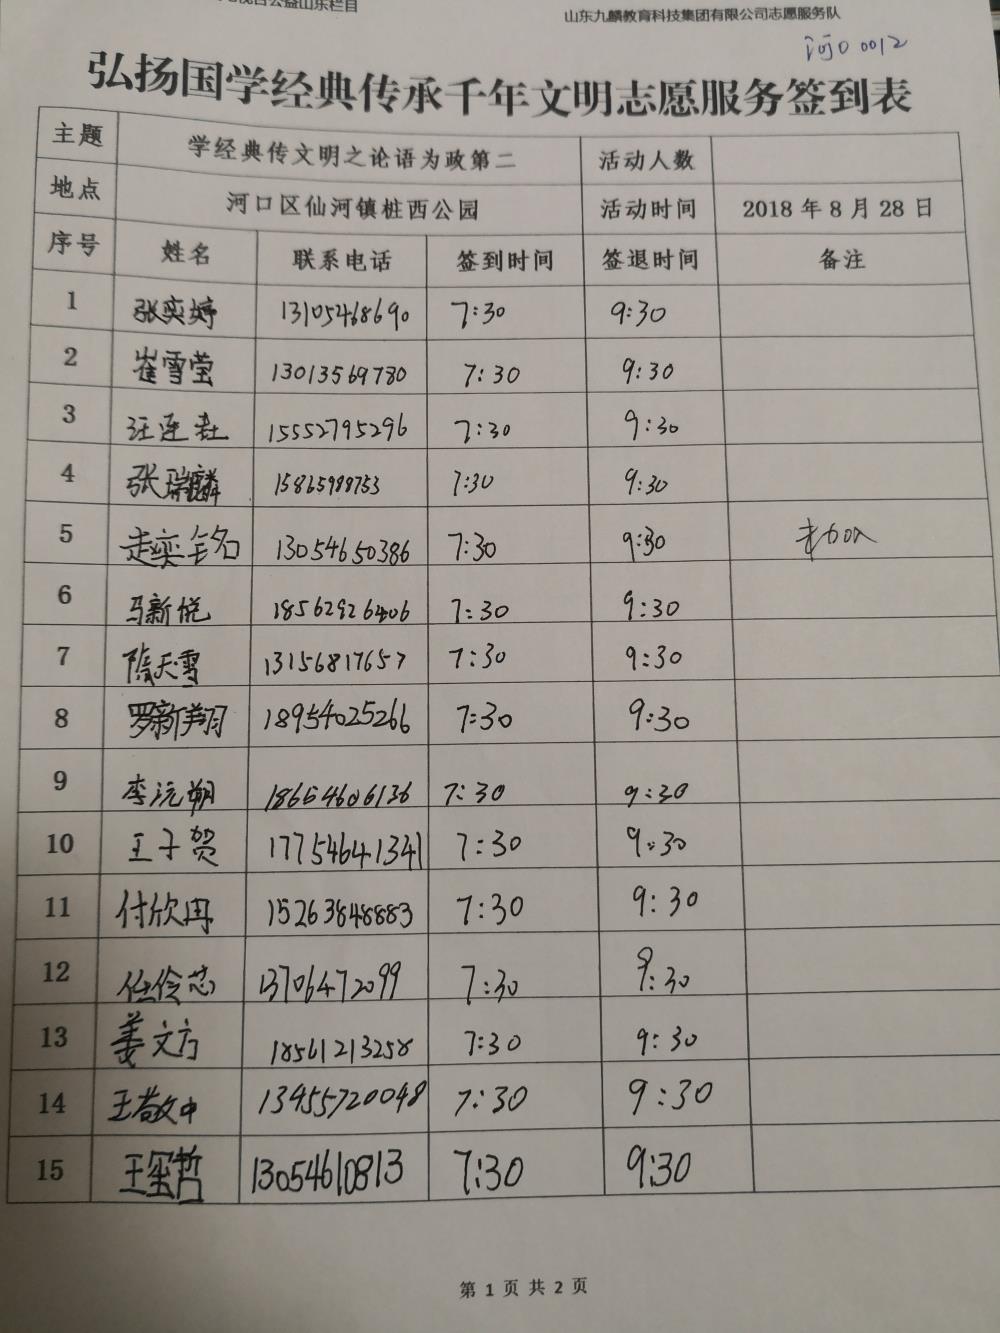 公益山东栏目
山东九麟教育科技集团有限公司志愿服务队
河口0012
弘扬国学经典传承千年文明志愿服务签到表
主题 学经典传文明之论语为政第二 活动人数
地点 河口区仙河镇桩西公园 活动时间 2018年8月28日
序号 姓名 联系电话 签到时间 签退时间 备注
1 张奕婷 13105468690 7:30 9:30
2 崔雪莹 13013569780 7:30 9:30
3 汪连君 15552795296 7:30 9:30
4 张瑞麟 15865988753 7:30 9:30
5 走奕铭 13054650386 7:30 9:30
6 马新悦 18562926406 7:30 9:30
7 隋天雪 13156817657 7:30 9:30
8 罗新翔 18954025266 7:30 9:30
9 李沅朔 18654606136 7:30 9:30
10 王子贺 17754641341 7:30 9:30
11 付欣冉 15263848883 7:30 9:30
12 任伶芯 13706472099 7:30 9:30
13 姜文方 18561213258 7:30 9:30
14 王敬中 13455720048 7:30 9:30
15 王玺哲 13054610813 7:30 9:30
第 1 页 共 2 页